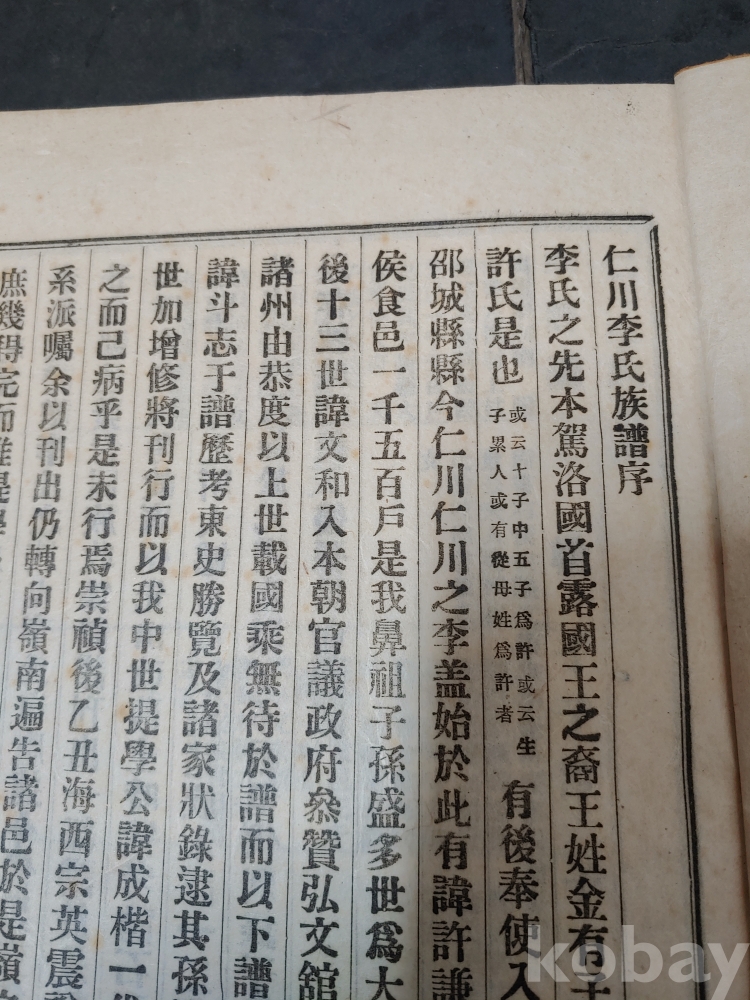 仁川李氏族譜序
李氏之先本駕洛國首露國王之裔王姓金有
許氏是也
或云十子中五子爲許或云生
子累人或有從母姓爲許者
有後奉使入
邵城縣縣今仁川仁川之李盖始於此有諱許謙
侯食邑一千五百戶是我鼻祖子孫盛多世爲大
後十三世諱文和入本朝官議政府叅贊弘文館
諸州由恭度以上世載國乘無待於譜而以下譜
諱斗志于譜歷考東史勝覽及諸家狀錄逮其孫
世加增修將刊行而以我中世提學公諱成楷一
之而己病乎是未行焉崇禎後乙丑海西宗英震
系派囑余以刊出仍轉向嶺南遍告諸邑於是嶺
庶幾得完而雖是
kobay